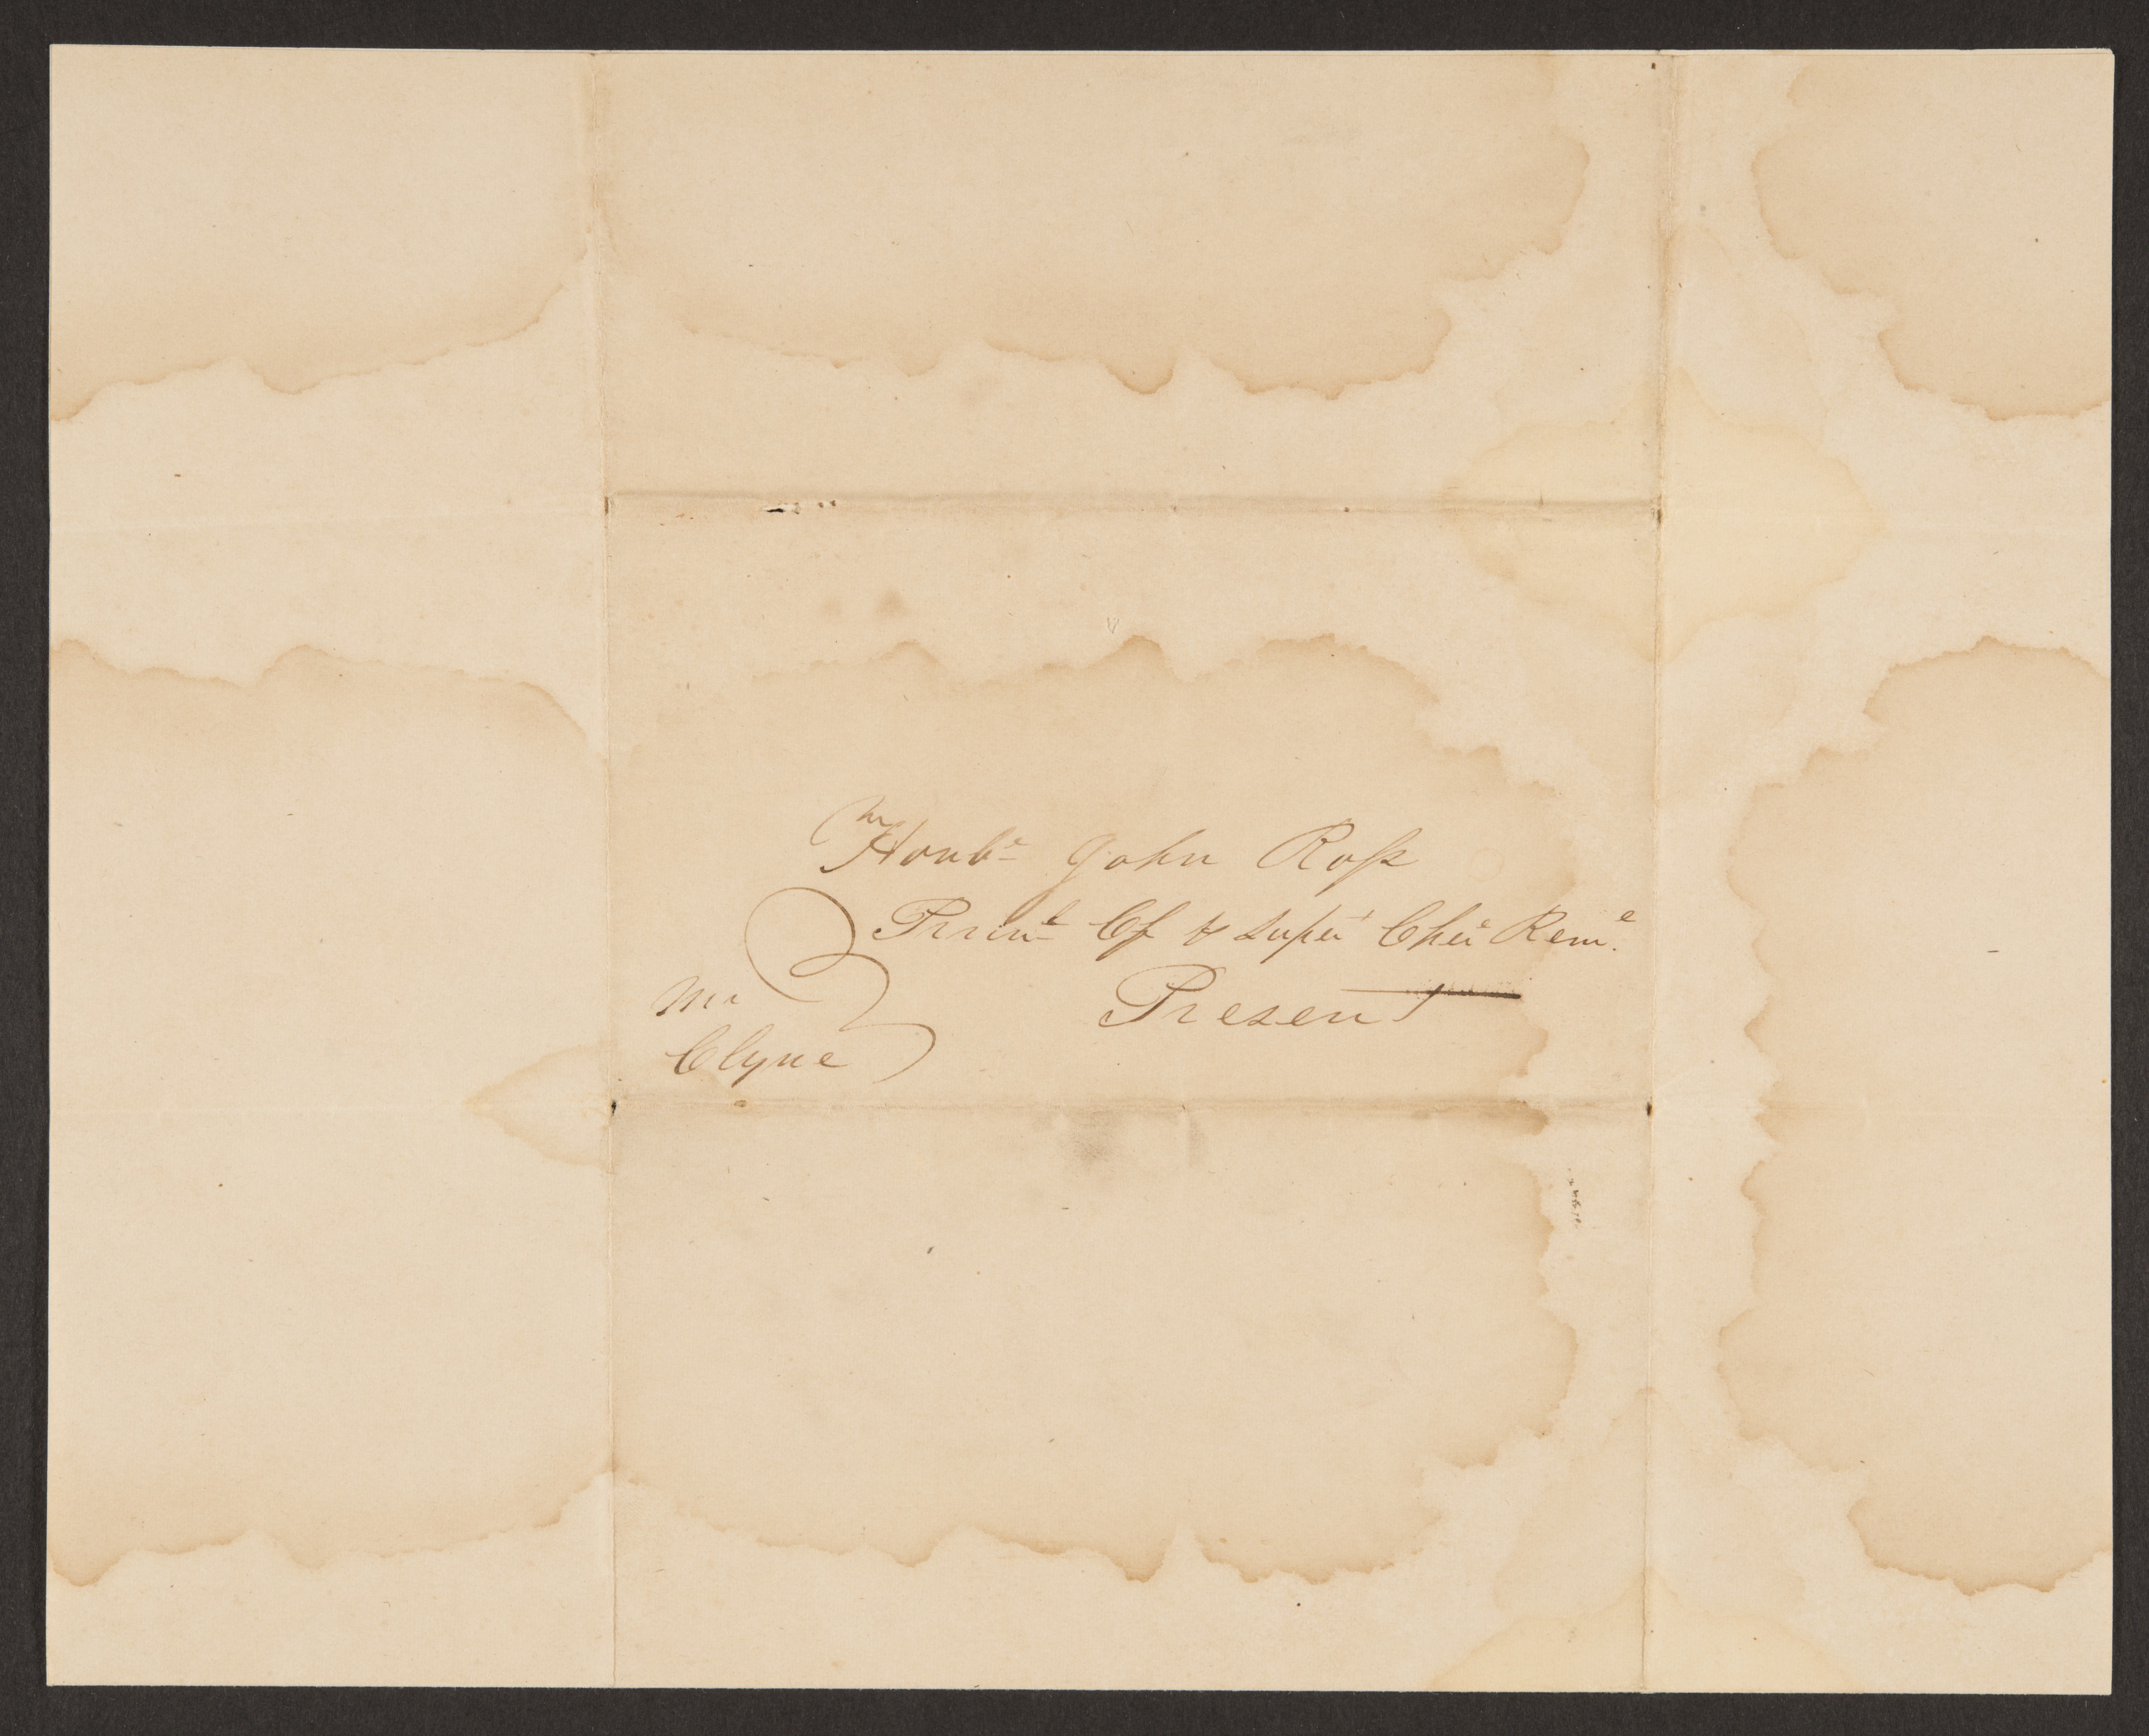 Honbe John Ross
Prinl Cf & Super Cher Reme.
Present
Mr
Clyne